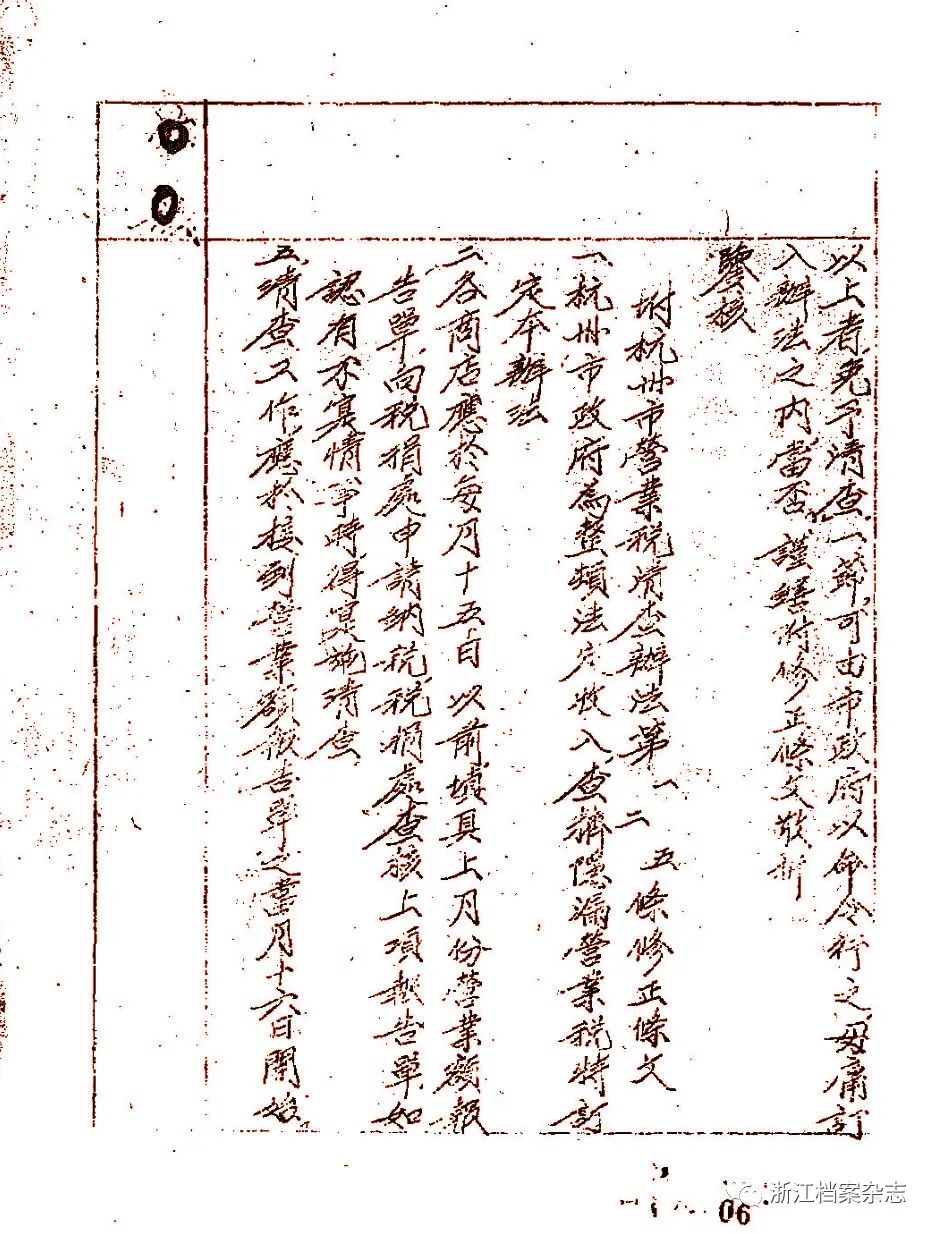 以上者免予清查一節可由市政府以命令行之毋庸訂
入辦法之内當否謹繕附修正條文敬祈
鑒核
附杭州市營業税清查辦法第一二五條修正條文
一杭州市政府為整頓法定收入查擠隱漏營業税特訂
定本辦法
二各商店應於每月十五日以前填具上月份營業額報
告單向税捐處申請納税税捐處查核上項報告單如
認有不寔情事時得寔施清查
五清查工作應於接到營業額報告單之當月十六日開始
浙江档案杂志
06